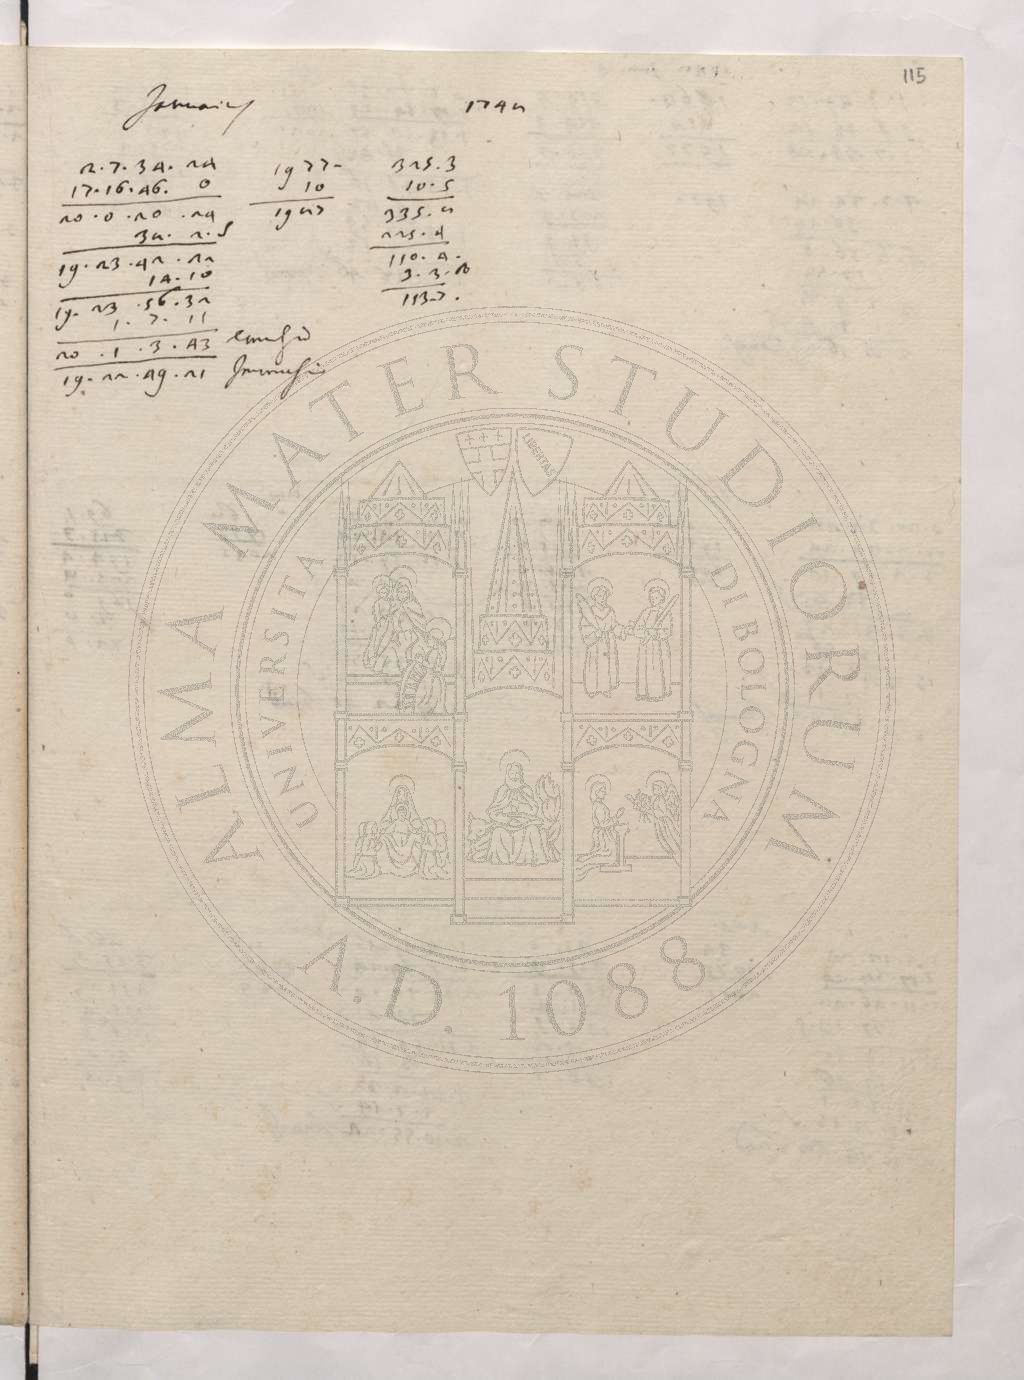 115
Januarius 1748
2.7.34.24 1977 325.3
17.16.46.0 10 10.5
20.0.20.24 1987 335.8
38.2.S 225.4
19.23.42.22 110.4.
14.10 3.3.
19.23.56.32 113.7.
1.7.11
20.1.3.43
19.22.49.21
ALMA MATER STUDIORUM
UNIVERSITA DI BOLOGNA
LIBERTAS
A.D. 1088